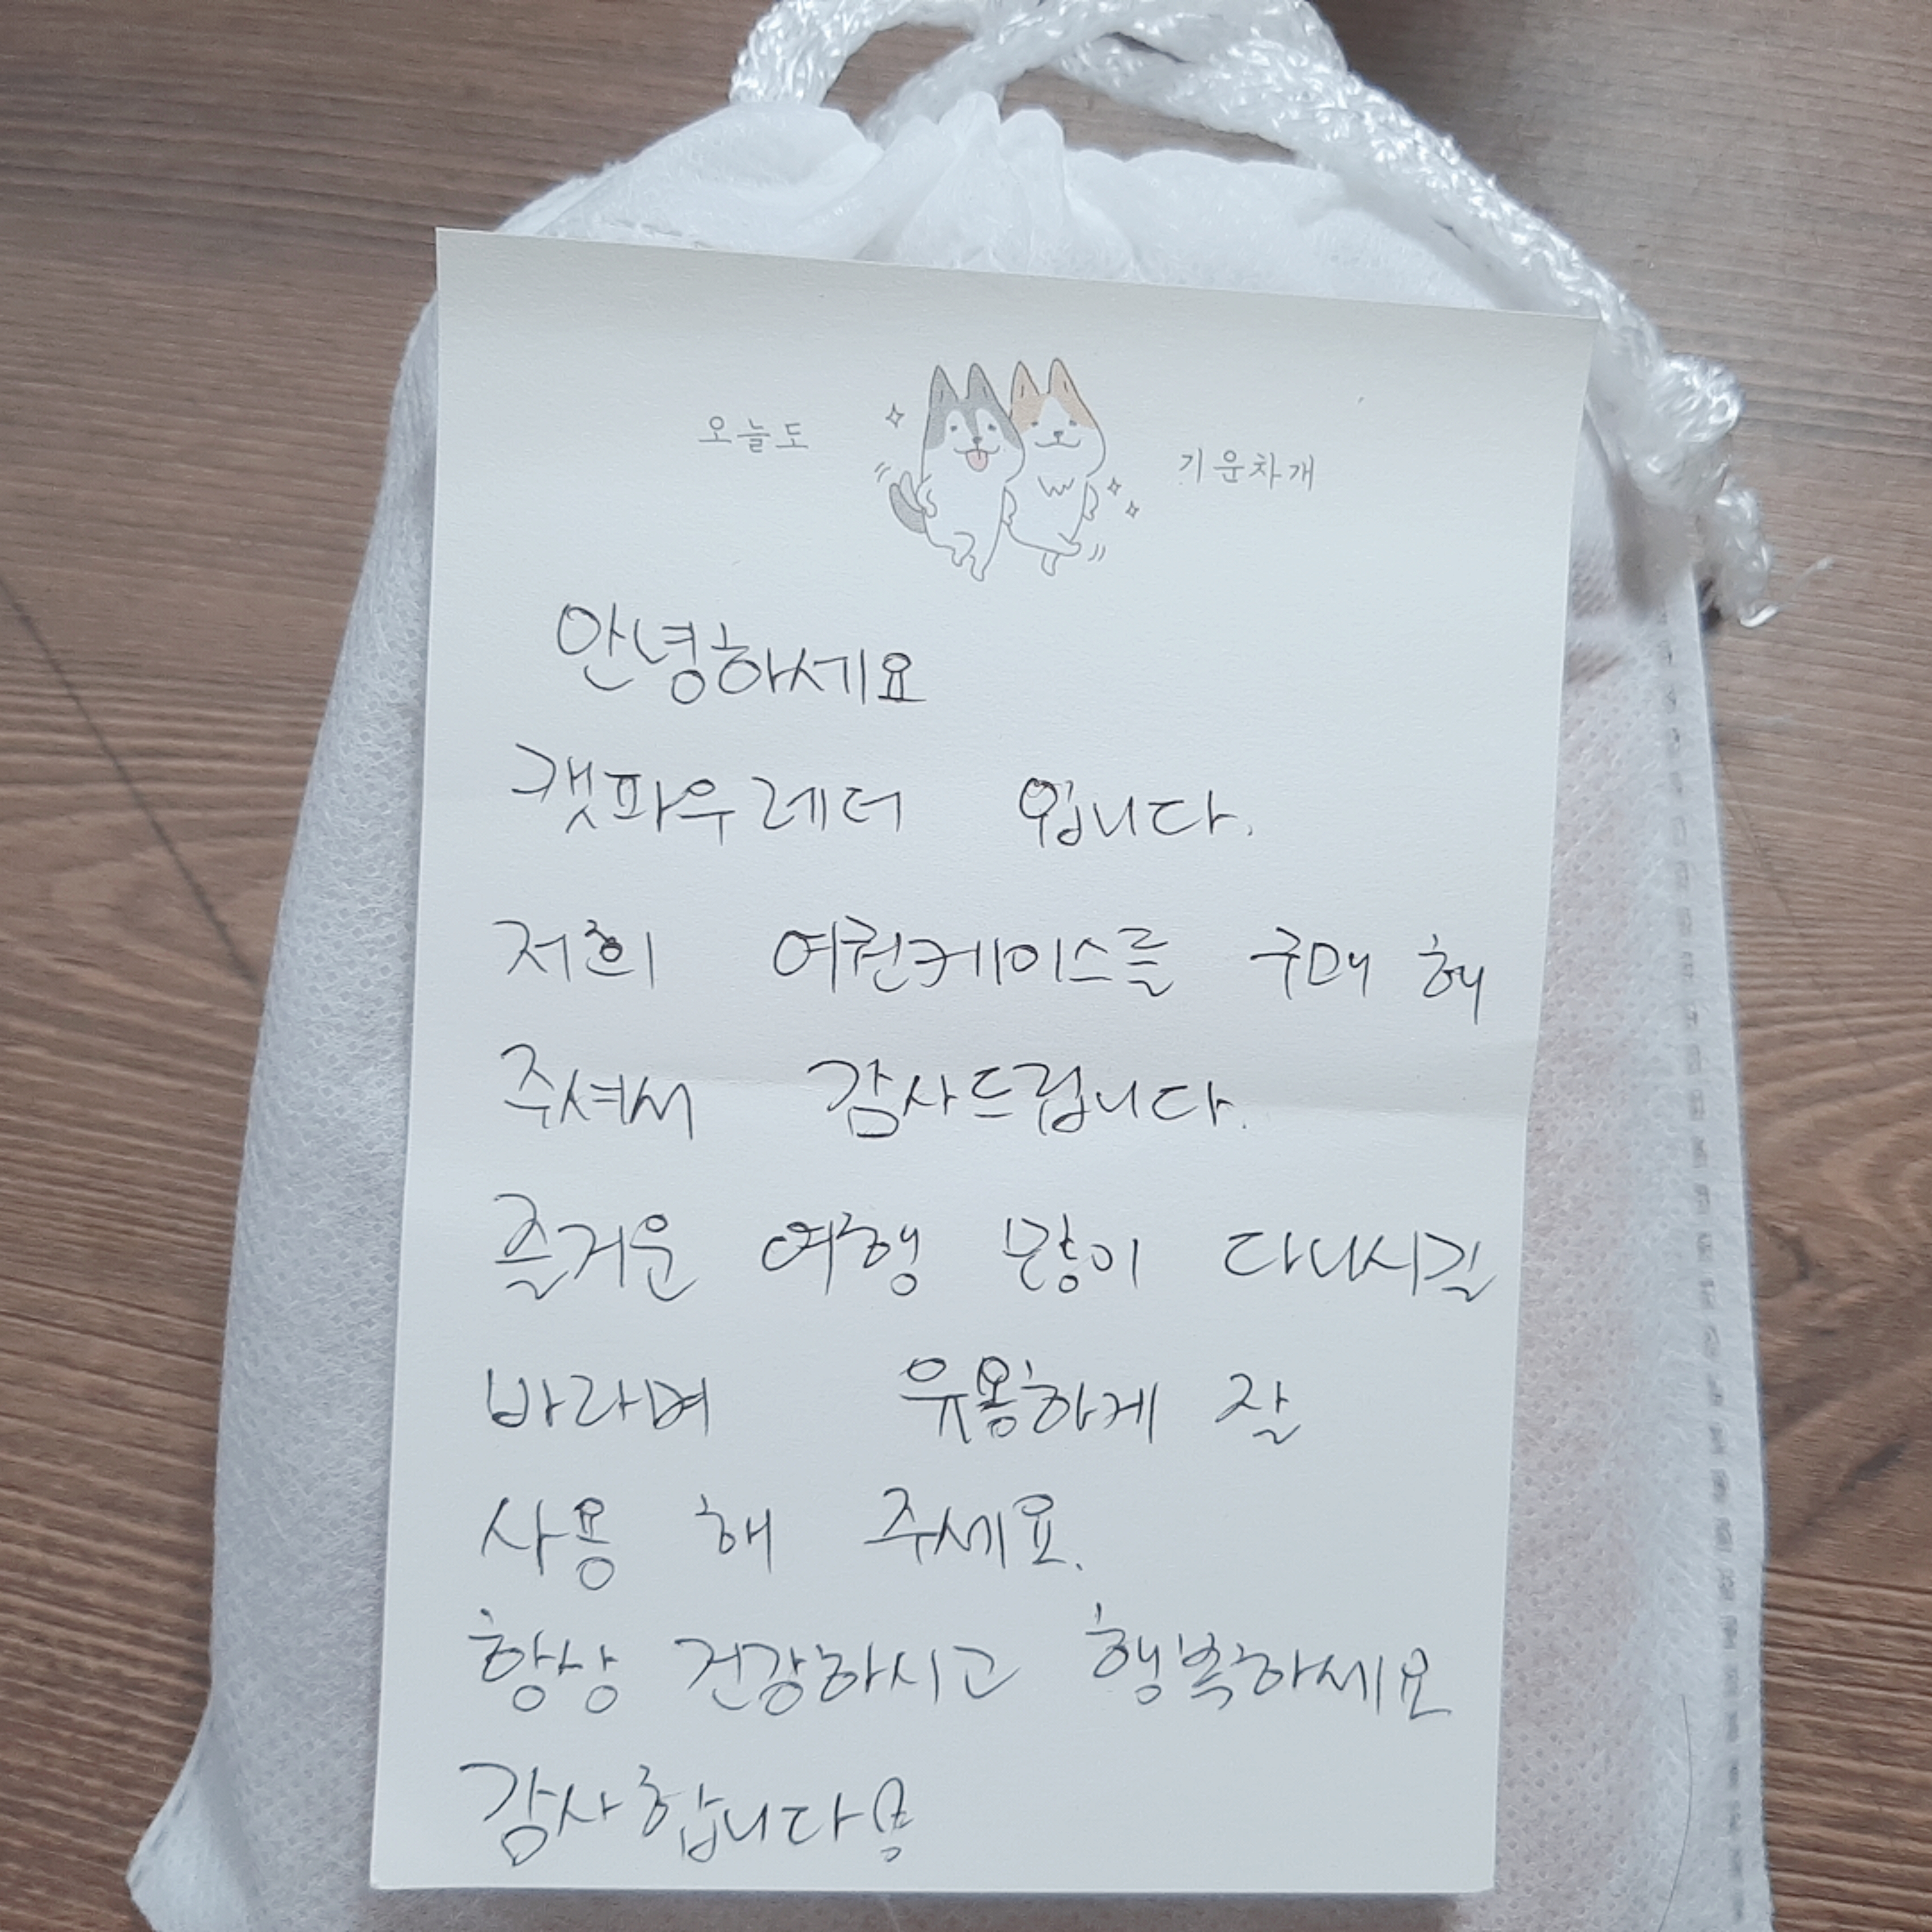 오늘도 기운차개
안녕하세요
캣파우레더 입니다.
저희 여권케이스를 구매 해
주셔서 감사드립니다.
즐거운 여행 많이 다니시길
바라며 유용하게 잘
사용 해 주세요.
항상 건강하시고 행복하세요
감사합니다!